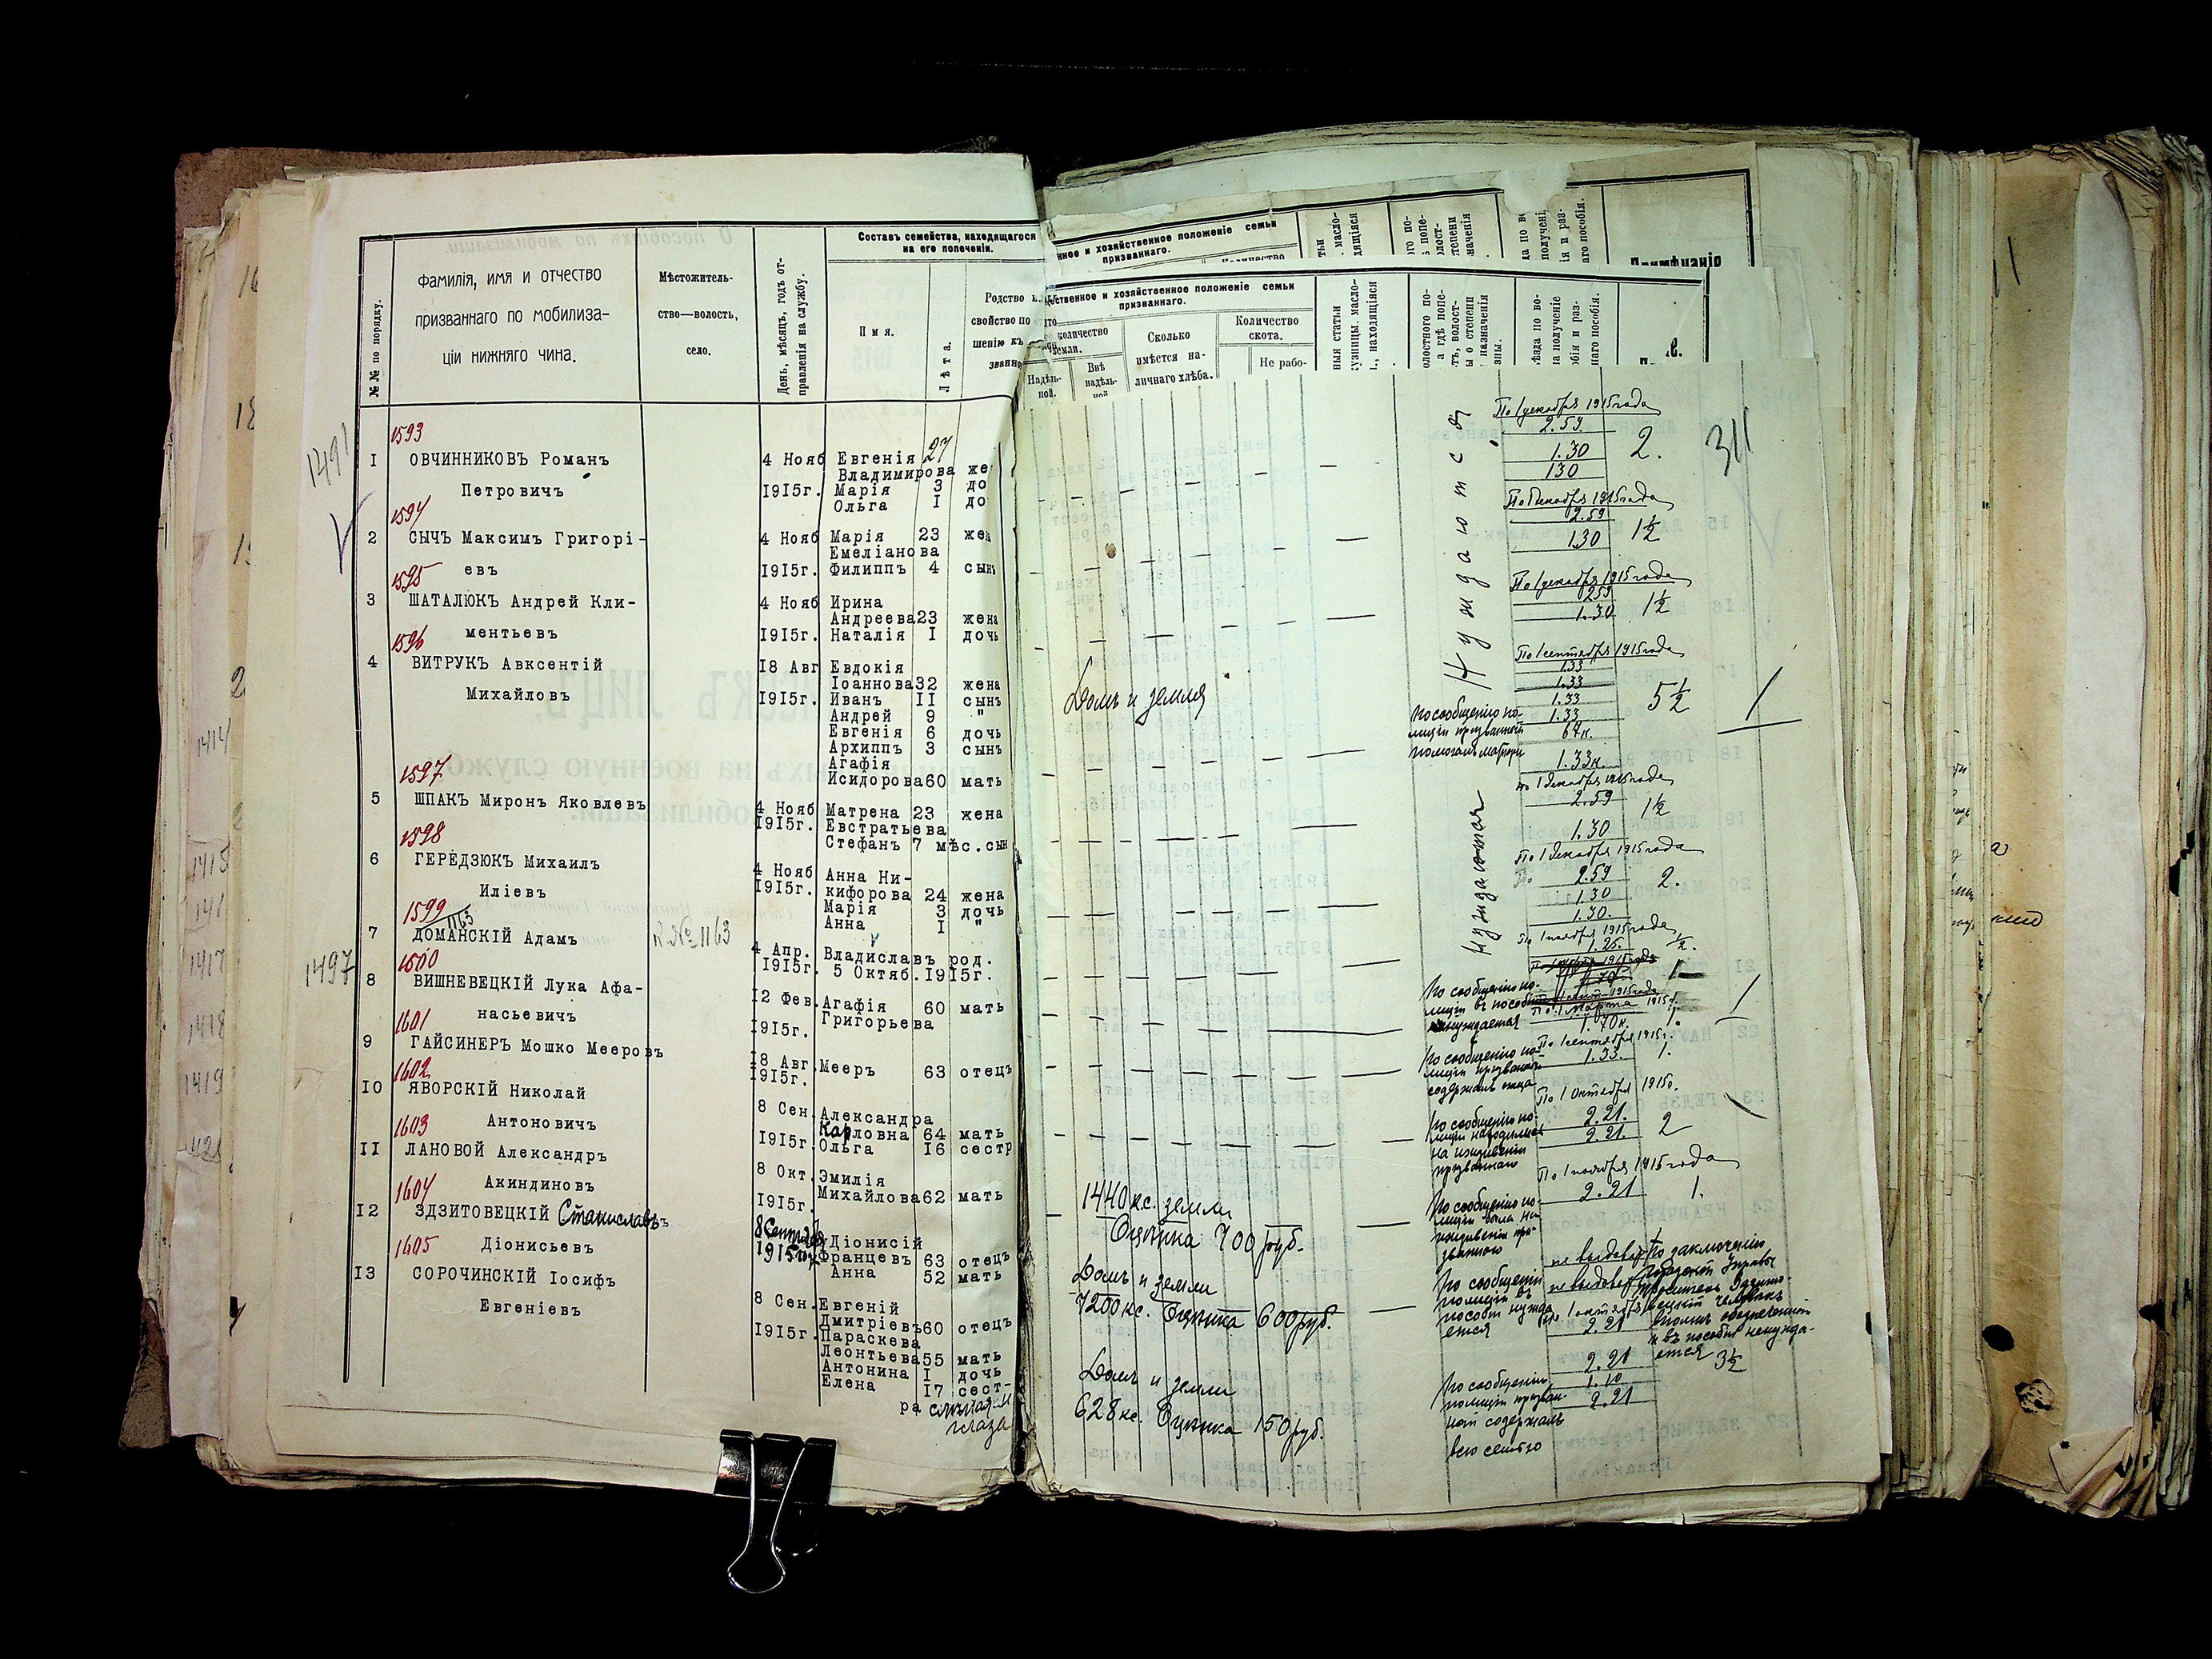 №№ по порядку.
Фамилія, имя и отчество
призваннаго по мобилиза-
ціи нижняго чина.
Мѣстожитель-
ство—волость,
село.
День, мѣсяцъ, годъ от-
правленія на службу.
Составъ семейства, находящагося
на его попеченіи.
Имя.
Лѣта.
Родство и
свойство по
шенію къ
званно
1491
1593
I ОВЧИННИКОВЪ Романъ
Петровичъ
4 Нояб
1915г.
Евгенія 27
Владимирова же
Марія 3 до
Ольга I до
1594
2 СЫЧЪ Максимъ Григорі-
евъ
4 Нояб
1915г.
Марія 23 жен
Емеліанова
Филиппъ 4 сынъ
1595
3 ШАТАЛЮКЪ Андрей Кли-
ментьевъ
4 Нояб
1915г.
Ирина
Андреева 23 жена
Наталія I дочь
1596
4 ВИТРУКЪ Авксентій
Михайловъ
18 Авг
1915г.
Евдокія
Іоаннова 32 жена
Иванъ II сынъ
Андрей 9 "
Евгенія 6 дочь
Архиппъ 3 сынъ
Агафія
Исидорова 60 мать
1597
5 ШПАКЪ Миронъ Яковлевъ
4 Нояб
1915г.
Матрена 23 жена
Евстратьева
Стефанъ 7 мѣс. сын
1598
6 ГЕРЕДЗЮКЪ Михаилъ
Иліевъ
4 Нояб
1915г.
Анна Ни-
кифорова 24 жена
Марія 3 дочь
Анна I "
1599
1163
7 ДОМАНСКІЙ Адамъ
№ 1163
4 Апр.
1915г.
Владиславъ род.
5 Октяб. 1915г.
1497
1500
8 ВИШНЕВЕЦКІЙ Лука Афа-
насьевичъ
12 Фев.
1915г.
Агафія 60 мать
Григорьева
1601
9 ГАЙСИНЕРЪ Мошко Мееровъ
18 Авг.
1915г.
Мееръ 63 отецъ
1602
10 ЯВОРСКІЙ Николай
Антоновичъ
8 Сен.
1915г.
Александра
Карловна 64 мать
Ольга 16 сестр
1603
II ЛАНОВОЙ Александръ
Акиндиновъ
8 Окт.
1915г.
Эмилія
Михайлова 62 мать
1604
12 ЗДЗИТОВЕЦКІЙ Станиславъ
Діонисьевъ
1915
Діонисій
Францевъ 63 отецъ
Анна 52 мать
1605
13 СОРОЧИНСКІЙ Іосифъ
Евгеніевъ
8 Сен.
1915г.
Евгеній
Дмитріевъ 60 отецъ
Параскева
Леонтьева 55 мать
Антонина I дочь
Елена 17 сест-
ра
глаза
нное и хозяйственное положеніе семьи
призваннаго.
ственное и хозяйственное положеніе семьи
призваннаго.
количество
земли.
Надѣль-
ной.
Внѣ
надѣль-
Сколько
имѣется на-
личнаго хлѣба.
Количество
скота.
Не рабо-
311
Нуждаются
По 1 декабря 1915 года
2.59
1.30
130
2.
По 1 декабря 1915 года
2.59
1.30
1½
По 1 декабря 1915 года
259
1.30
1½
Домъ и земля
По сообщенію по-
лиціи призванный
помогалъ матери
По 1 сентября 1915 года
1.33
1.33
1.33
1.33
67к.
1.33к.
5½
Нуждаются
по 1 декабря 1915 года
2.59
1.30
1½
По 1 декабря 1915 года
2.59
1.30
1.30.
2.
По 1 ноября 1915 года
1.25.
½.
По сообщенію по-
лиціи въ пособіи
нуждается
По 1 Марта 1915г.
1.70к.
1.
По сообщенію по-
лиціи призванный
содержалъ отца
По 1 сентября 1915г.
1.33.
1.
По сообщенію по-
лиціи находились
на иждивеніи
призваннаго
По 1 Октября 1915г.
2.21.
2.21.
2
1440 кс. земли
Оцѣнка 700 руб.
По сообщенію по-
лиціи была на
иждивеніи при-
званнаго
По 1 ноября 1915 года
2.21
1.
Домъ и земли
7200 кс. Оцѣнка 600 руб.
По сообщенію
полиціи въ
пособіи нужда
ется
По заключенію
Городской Управы
и въ пособіи ненужда-
ется
2.21
Домъ и земли
628 кс. Оцѣнка 150 руб.
По сообщенію
полиціи призван-
ный содержалъ
всю семью
2.21
1.10
2.21
3½